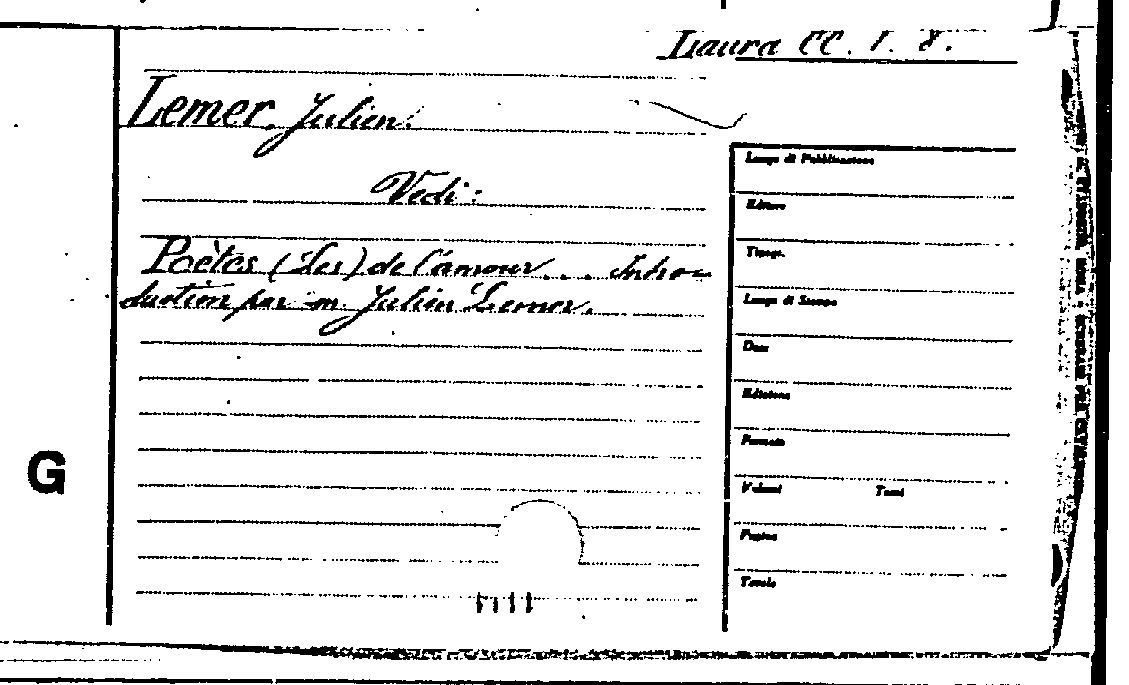 Laura CC. 1. 8.
Lemer, Julien.
Vedi:
Poètes (Les) de l'amour ... Intro-
duction par m. Julien Lemer.
Luogo di Pubblicazione
Editore
Tipogr.
Luogo di Stampa
Data
Edizione
Formato
Volumi Tomi
Pagine
Tavole
G